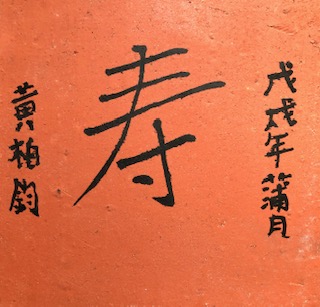 戊戌年蒲月
寿
黄柏鈞